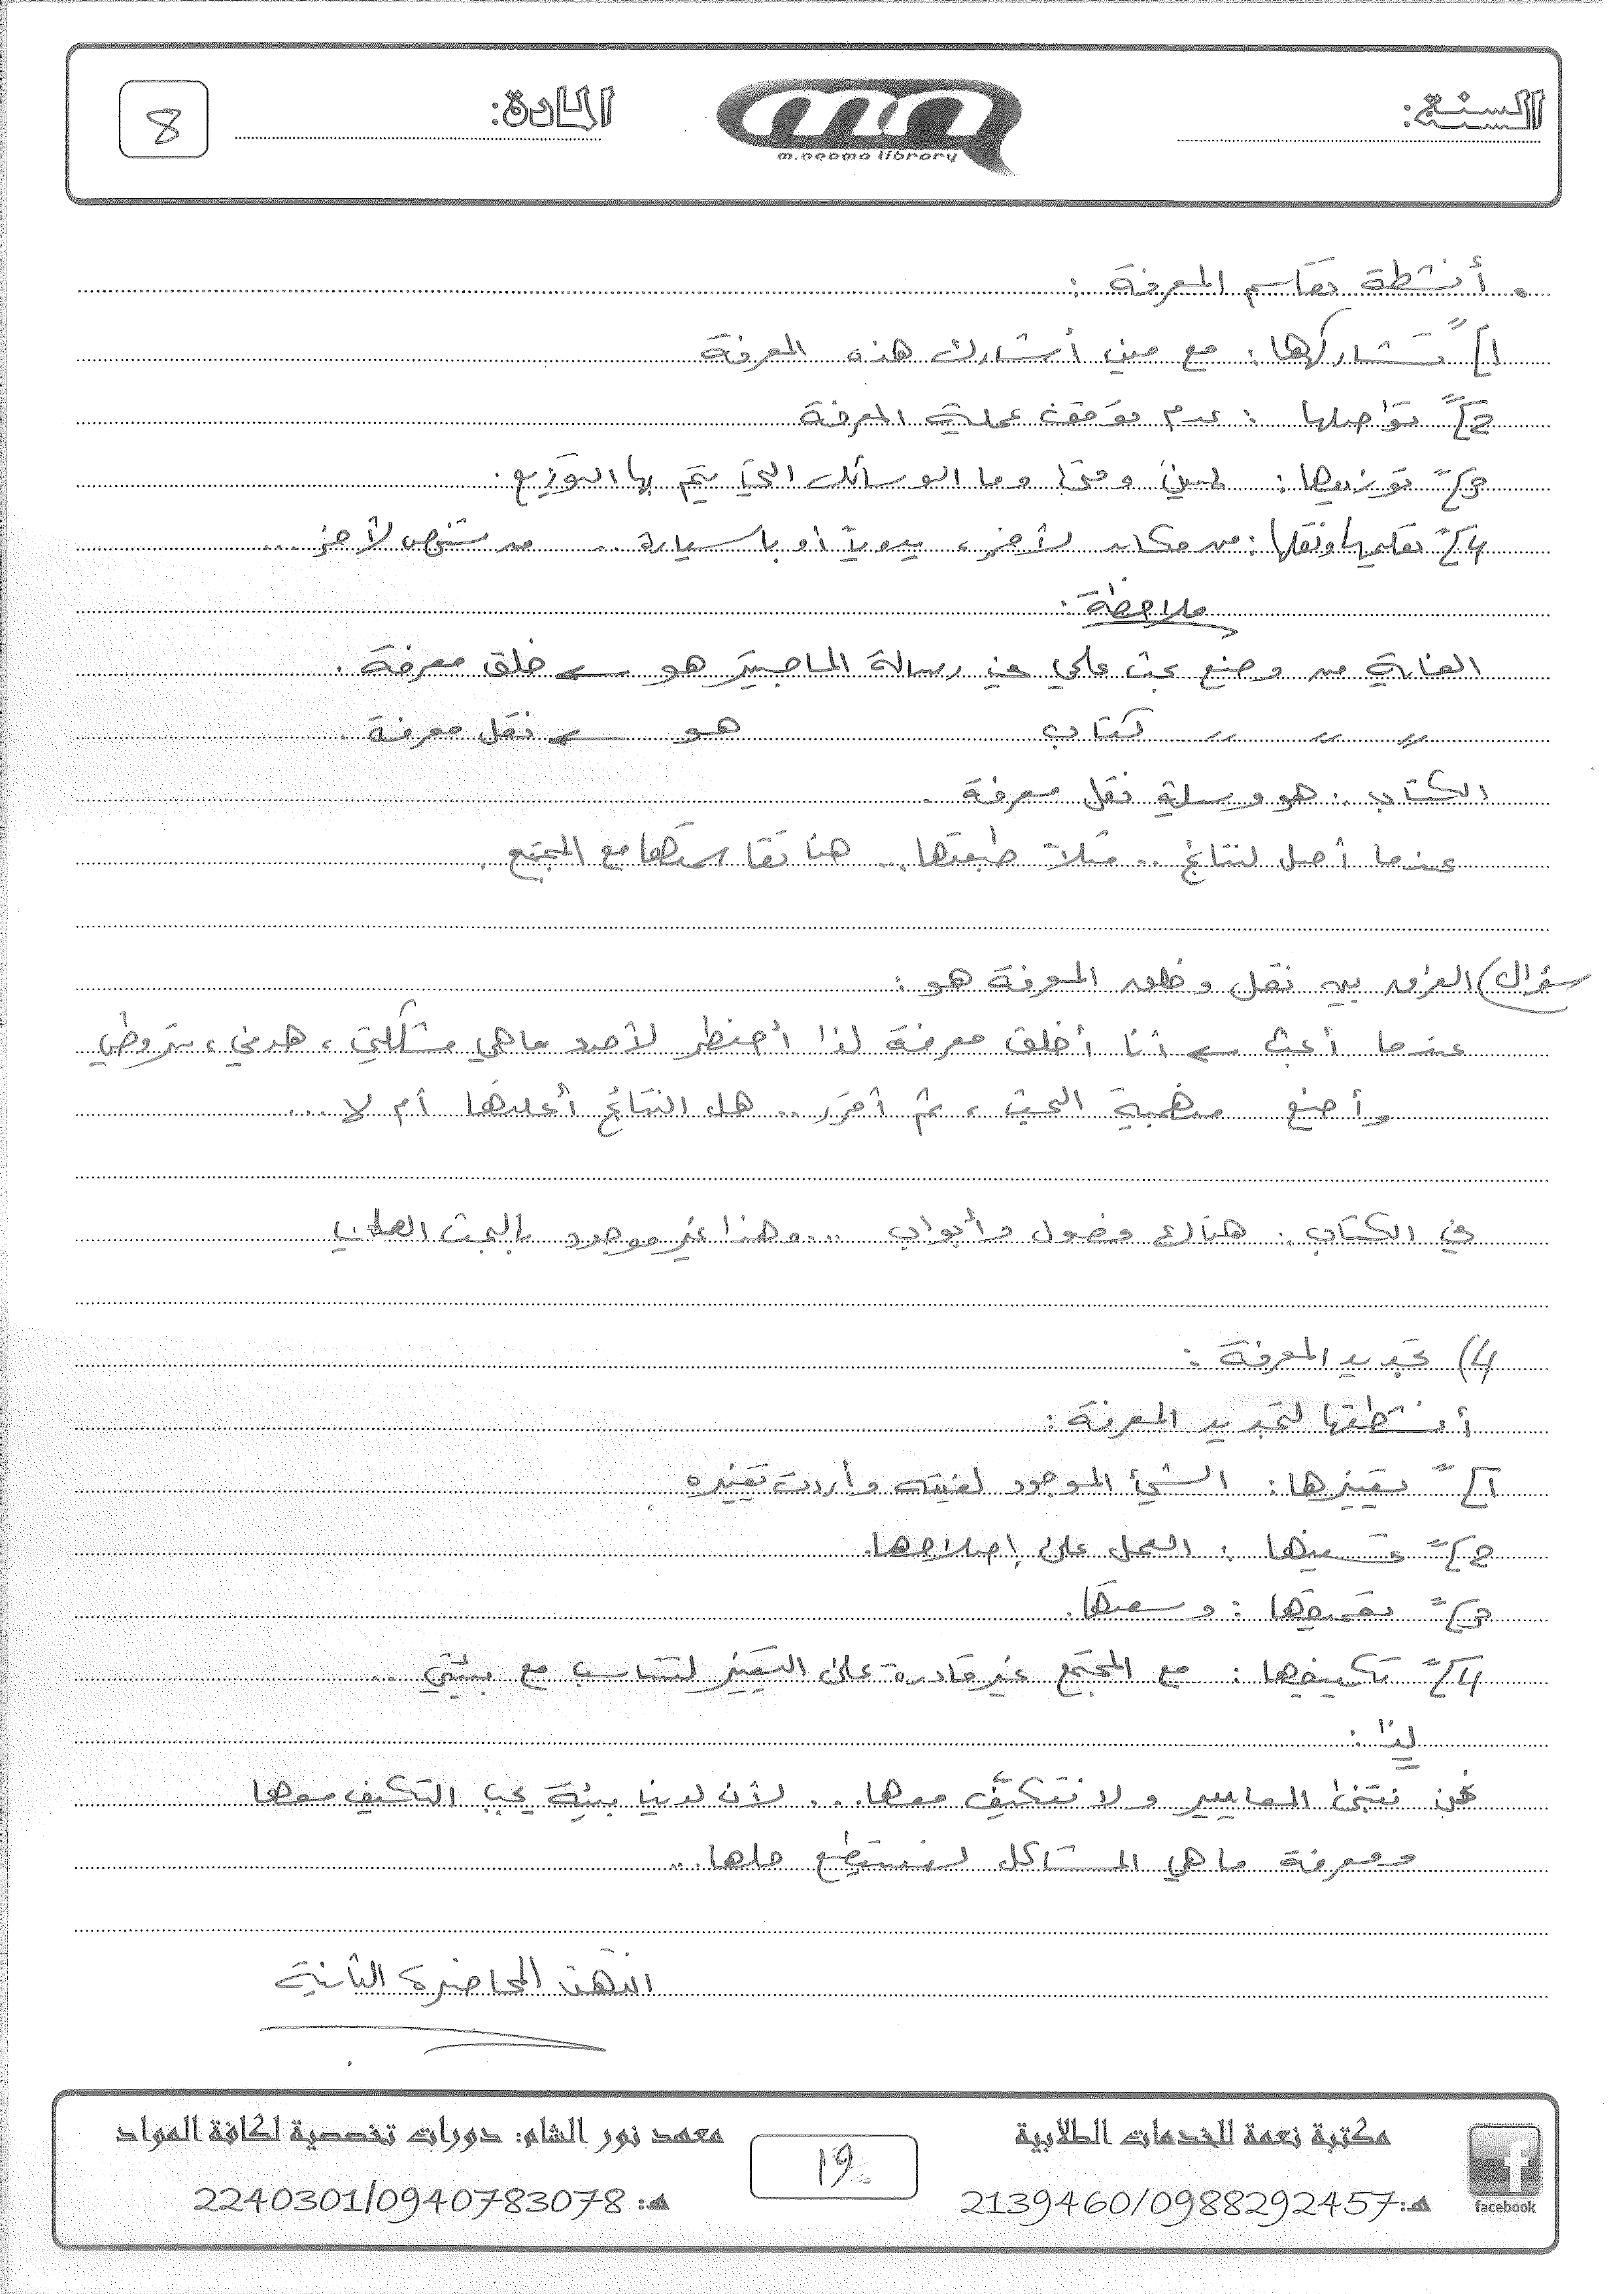 السنة:
m.neama library
المادة:
8
• أنشطة تقاسم المعرفة :
1] تشاركها : مع مين أتشارك هذه المعرفة
2] تواصلها : عدم توقف عملية المعرفة
3] توزيعها : لمين ومتى وما الوسائل التي يتم بها التوزيع .
4] تعليمها ونقلها : من مكان لآخر ، يدوياً أو بالسيارة .. من شخص لآخر ...
ملاحظة :
الغاية من وضع بحث علمي في رسالة الماجستير هو ← خلق معرفة .
〃 〃 〃 كتاب هو ← نقل معرفة .
الكتاب : هو وسيلة نقل معرفة .
عندما أصل لنتائج .. مثلاً طبعتها .. هنا تقاسمتها مع المجتمع .
سؤال) الفرق بين نقل وخلق المعرفة هو :
عندما أبحث ← أنا أخلق معرفة لذا أضطر لأحدد ماهي مشكلتي ، هدفي ، شروطي
وأضع منهجية البحث ، ثم أقرر .. هل النتائج أعلنها أم لا ...
في الكتاب : هناك فصول وأبواب ... وهذا غير موجود بالبحث العلمي
4) تجديد المعرفة :
أنشطتها لتجديد المعرفة :
1] تغييرها : الشيء الموجود لغيته وأردت تغييره
2] تحسينها : العمل على إصلاحها .
3] تعميقها : وسعتها .
4] تكييفها : مع المجتمع غير قادرة على التغيير لتتناسب مع بيئتي ..
لذا :
نحن نتبنى المعايير ولا نتكيّف معها ... لأن لدينا بيئة يجب التكيف معها
ومعرفة ماهي المشاكل لنستطيع حلها ...
انتهت المحاضرة الثانية
مكتبة نعمة للخدمات الطلابية
هـ: 2139460/0988292457
facebook
19
معهد نور الشام: دورات تخصصية لكافة المواد
هـ: 2240301/0940783078